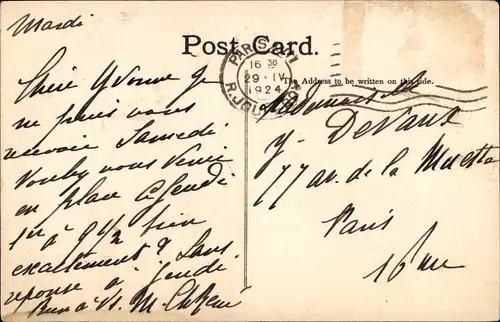 Mardi
Post Card.
The Address to be written on this side.
PARIS
16 30
29 · IV
1924
Chère Yvonne je
ne puis vous
revoir Samedi
Voulez vous venir
en place Jeudi
1er à 9 1/2 bien
exactement? Sans
réponse à jeudi
Bien à V.
Mademoiselle
Y. Devaux
77 av. de la Muette
Paris
16 ème